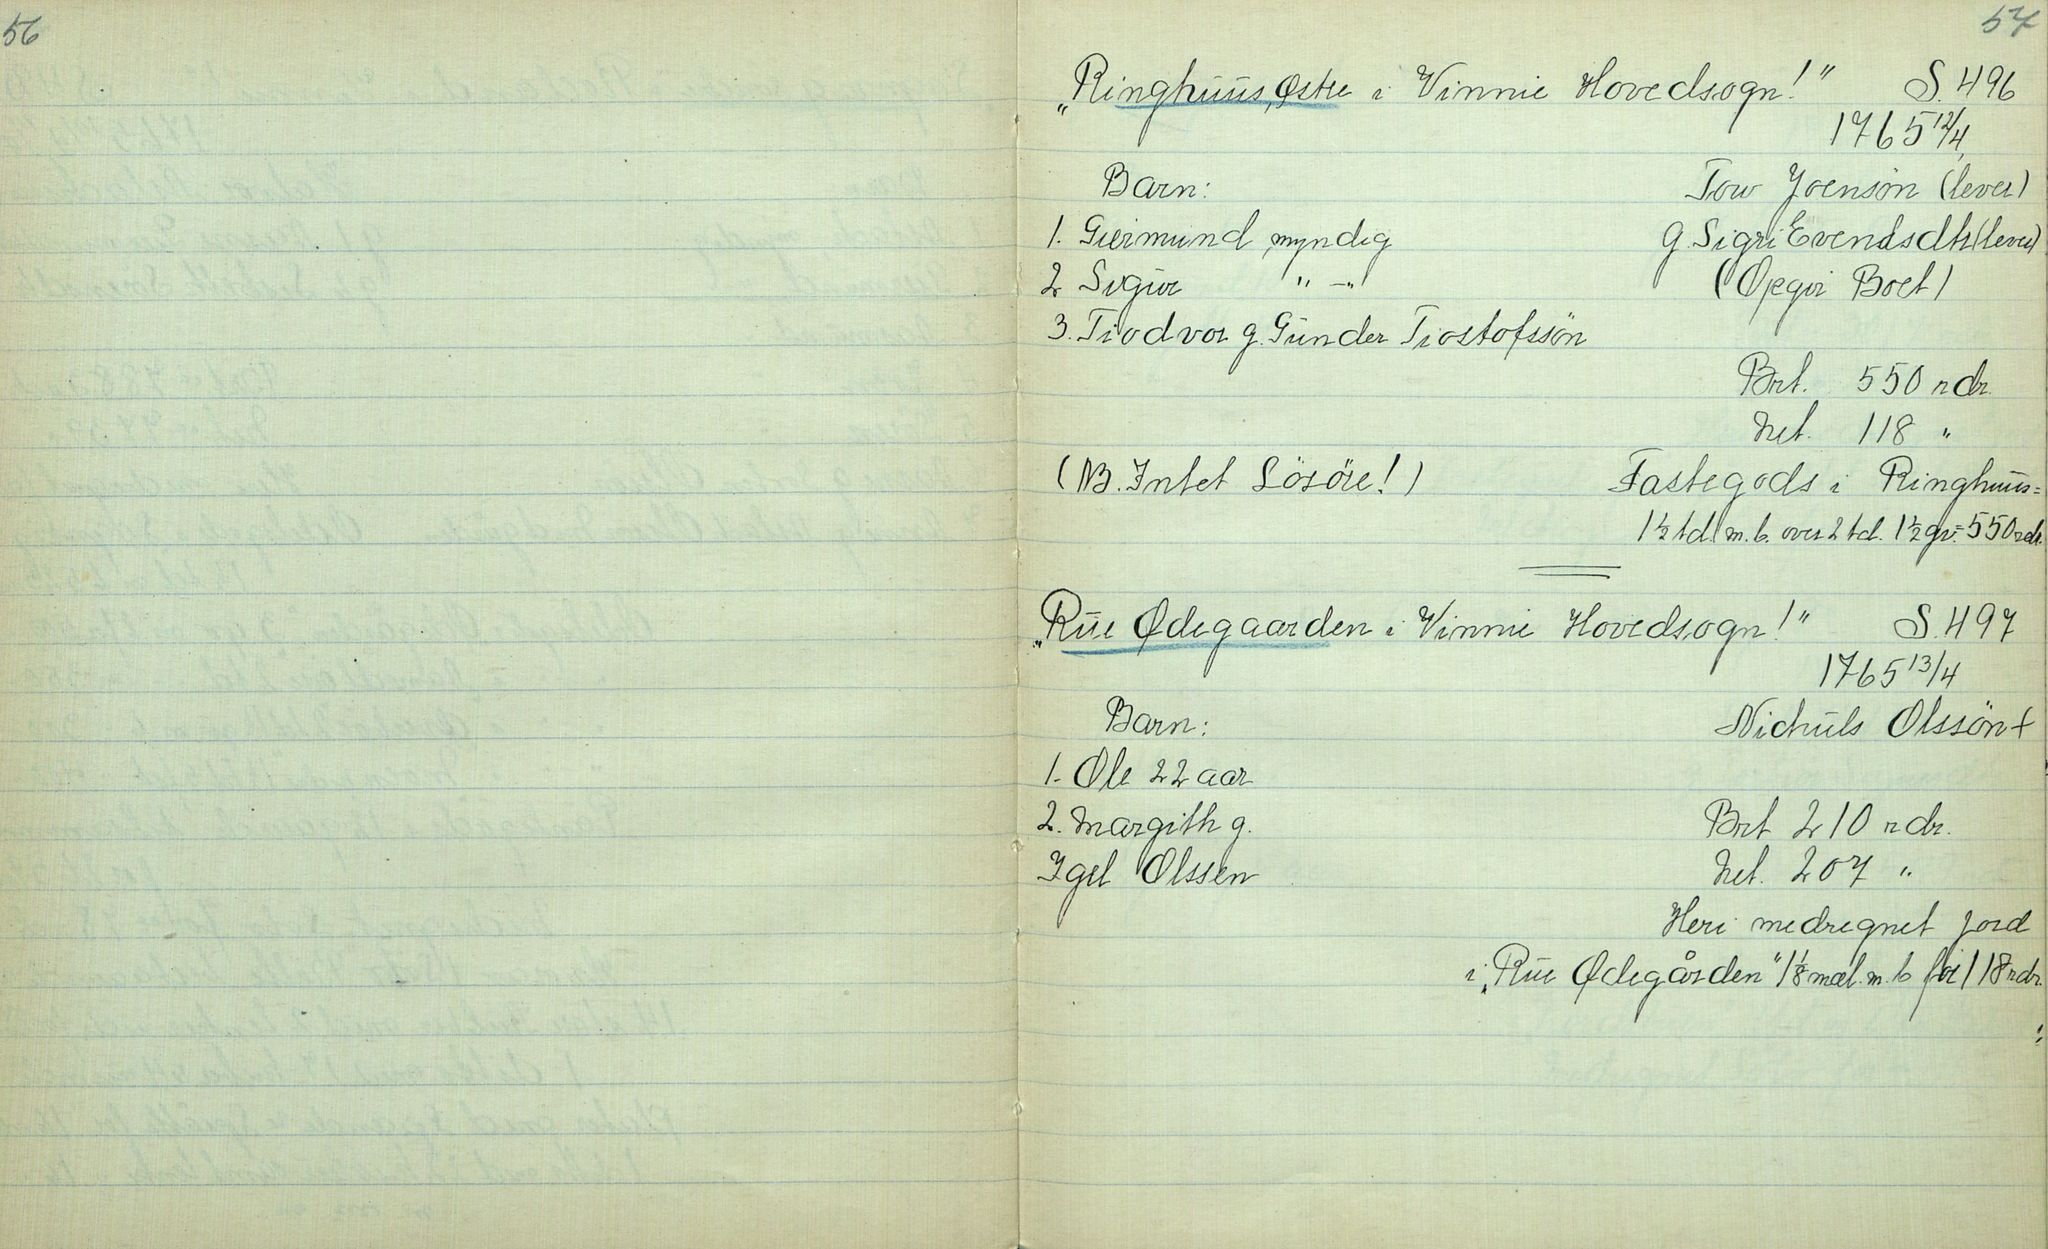 56
57
„Ringhuus, Østre i Vinnie Hovedsogn!" S. 496
1765 12/4
Barn: Tow Joensön (lever)
1. Giermund myndig g. Sigri Evendsdtr (lever)
2 Sigur " -" (Opgir Boet)
3. Tiodvor g. Gunder Tiostofssön
Brt. 550 rdr.
Net. 118 "
(NB. Intet Lösöre!) Fastegods i Ringhuus=
1½ td. m. b. over 2 td. 1½ gr. = 550 rdr.
„Rue Ødegaarden i Vinnie Hovedsogn!" S. 497
1765 13/4
Barn: Nichuls Olssön +
1. Ole 22 aar
2. Margith g. Brt 210 rdr.
Igel Olssen Net. 207 "
Heri medregnet jord
i „Rue Ødegården" 1⅛ mæl. m. b for 118 rdr.